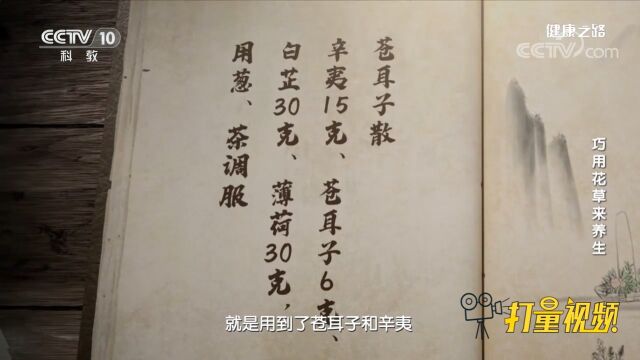 CCTV 10
科教
健康之路
CCTV.com
苍耳子散
辛夷15克、苍耳子6克、
白芷30克、薄荷30克，
用葱、茶调服
巧用花草来养生
就是用到了苍耳子和辛夷
打量视频